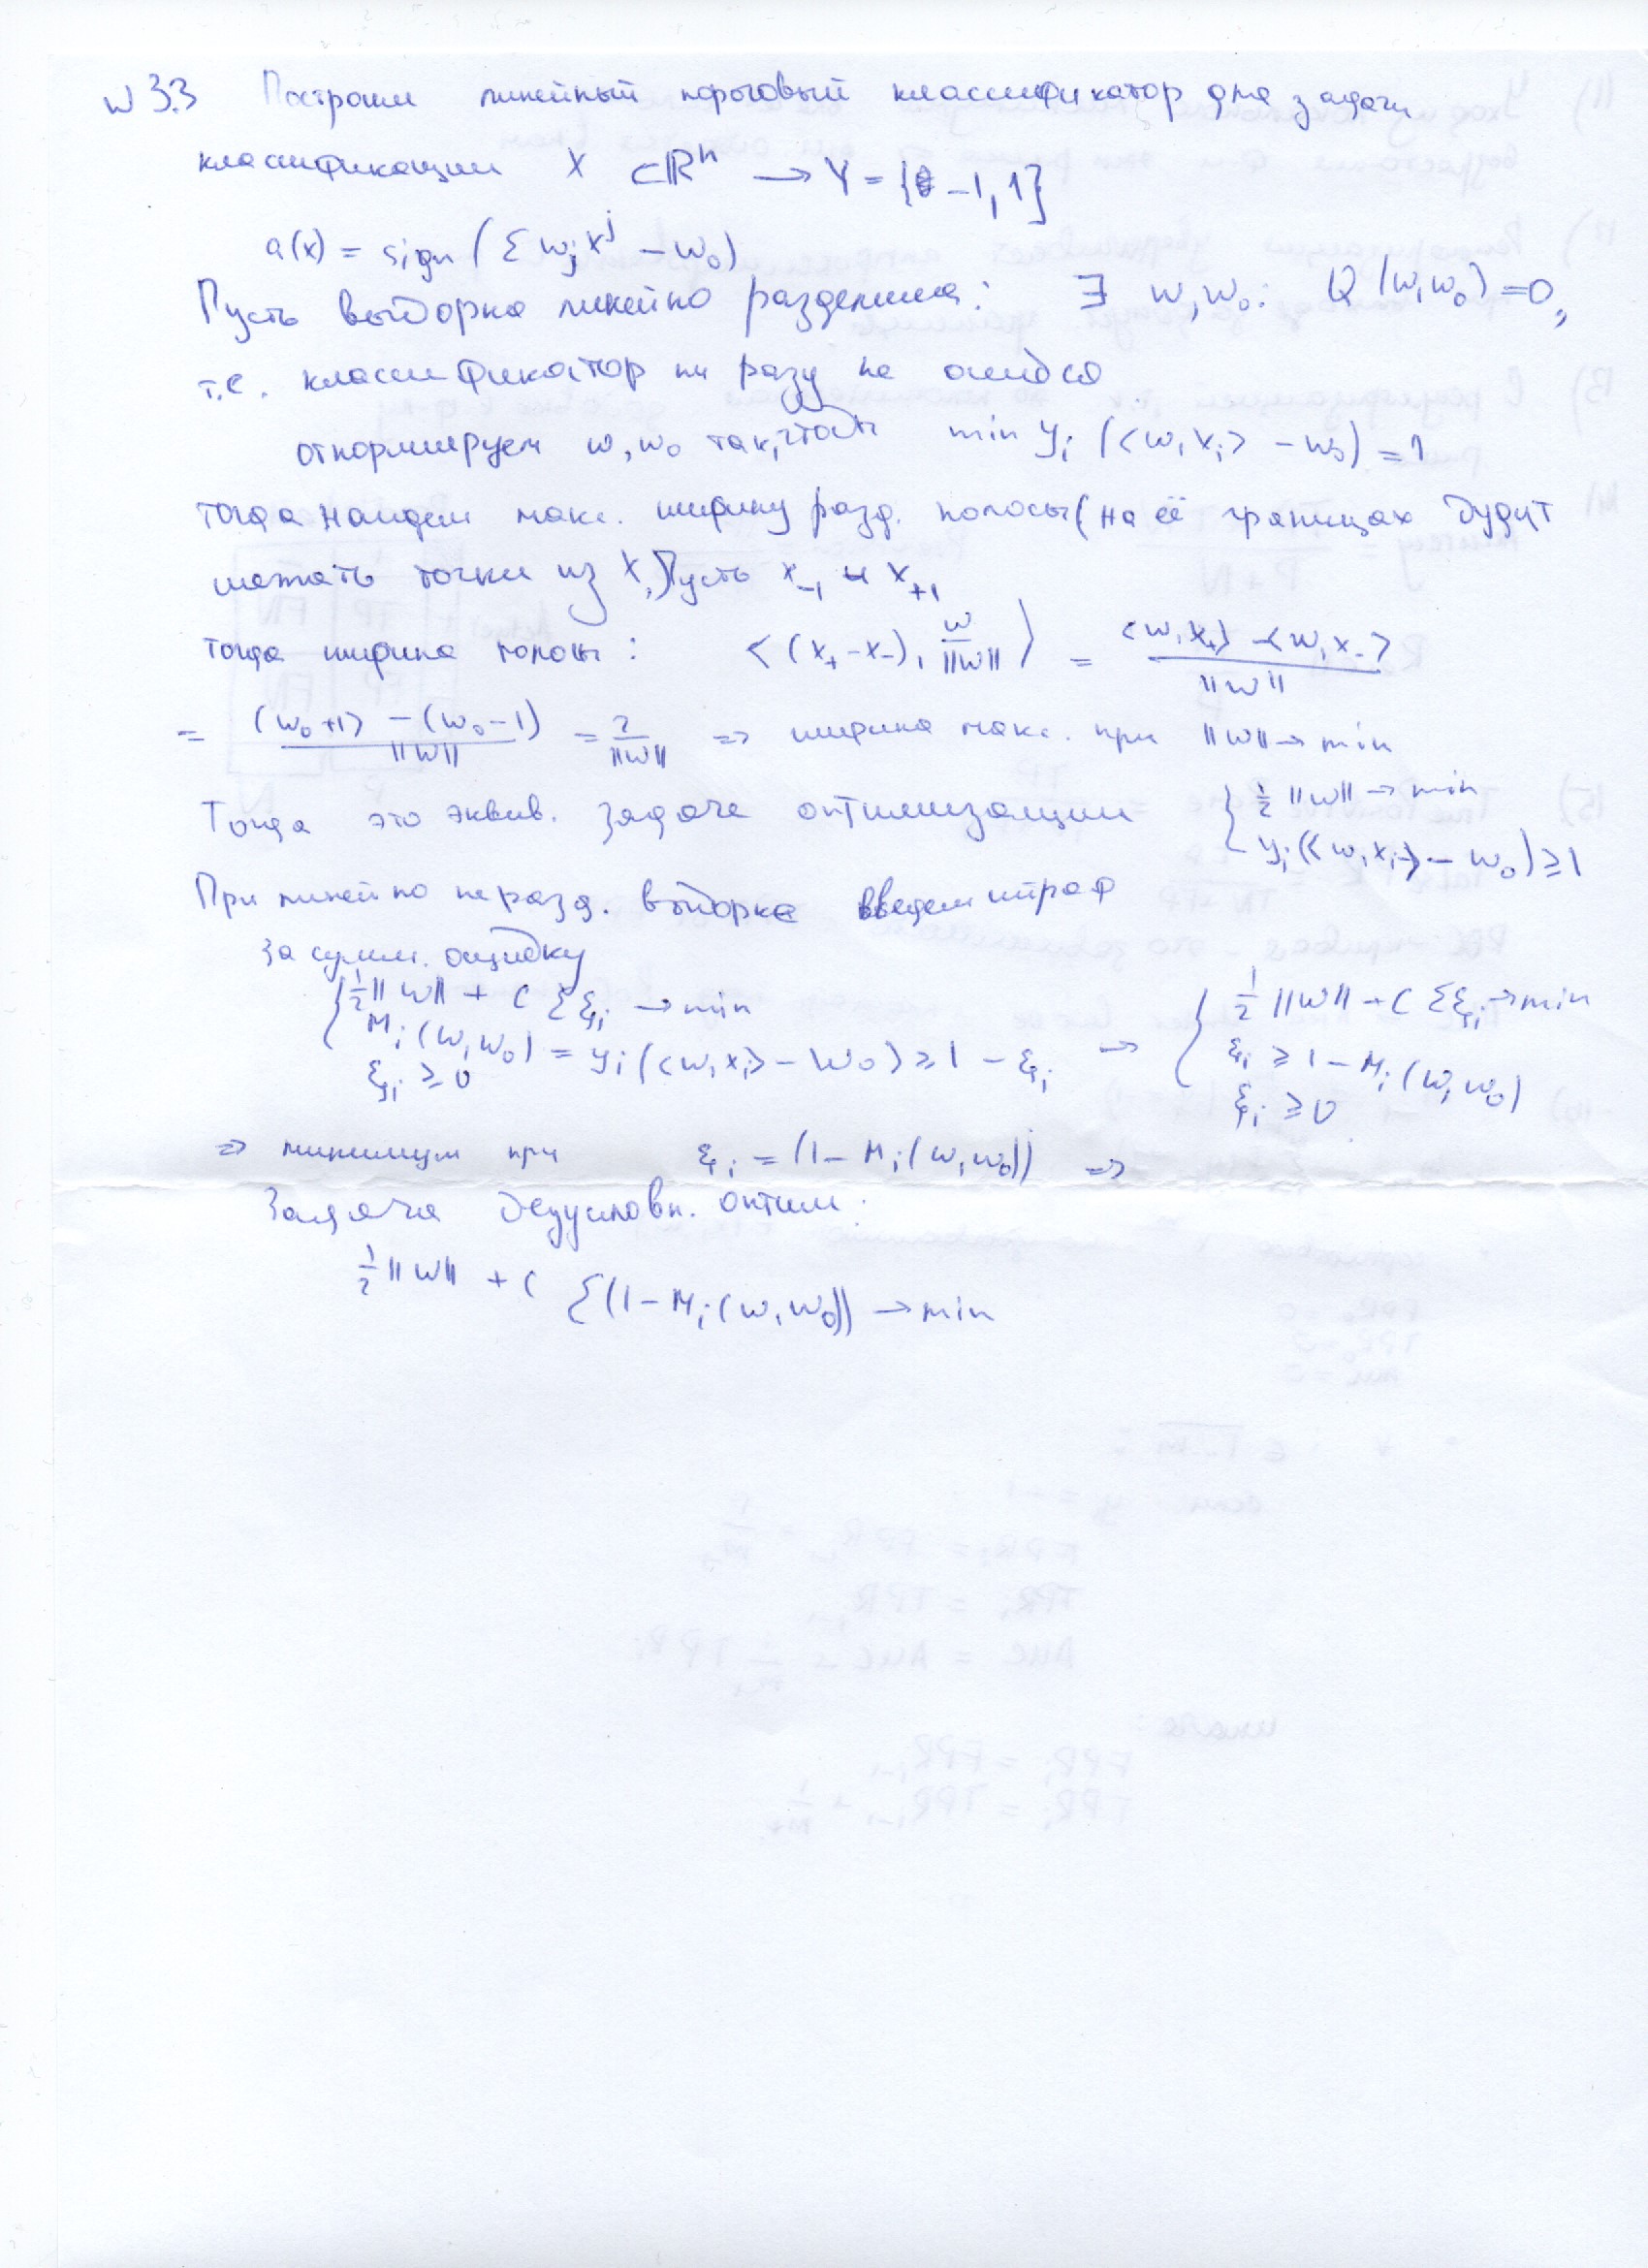 w 3.3 Построим линейный пороговый классификатор для задачи
классификации X ⊂ ℝⁿ → Y = {-1, 1}
a(x) = sign (Σ wⱼ xʲ - w₀)
Пусть выборка линейно разделима: ∃ w, w₀: Q(w, w₀) = 0,
т.е. классификатор ни разу не ошибся
отнормируем w, w₀ так, чтобы min yᵢ (<w, xᵢ> - w₀) = 1
тогда найдем макс. ширину разд. полосы (на её границах будут
лежать точки из X.) Пусть x₋₁ и x₊₁
тогда ширина полосы: <(x₊ - x₋), w/||w||> = (<w, x₊> - <w, x₋>)/||w||
= ((w₀+1) - (w₀-1))/||w|| = 2/||w|| => ширина макс. при ||w|| → min
Тогда это эквив. задаче оптимизации { ½ ||w|| → min
yᵢ(<w, xᵢ> - w₀) ≥ 1
При линейно неразд. выборке введем штраф
за сумм. ошибку
{ ½ ||w|| + C Σ ξᵢ → min
Mᵢ(w, w₀) = yᵢ(<w, xᵢ> - w₀) ≥ 1 - ξᵢ
ξᵢ ≥ 0
→ { ½ ||w|| + C Σ ξᵢ → min
ξᵢ ≥ 1 - Mᵢ(w, w₀)
ξᵢ ≥ 0
=> минимум при ξᵢ = (1 - Mᵢ(w, w₀)) =>
Задача безусловн. оптим.
½ ||w|| + C Σ(1 - Mᵢ(w, w₀)) → min